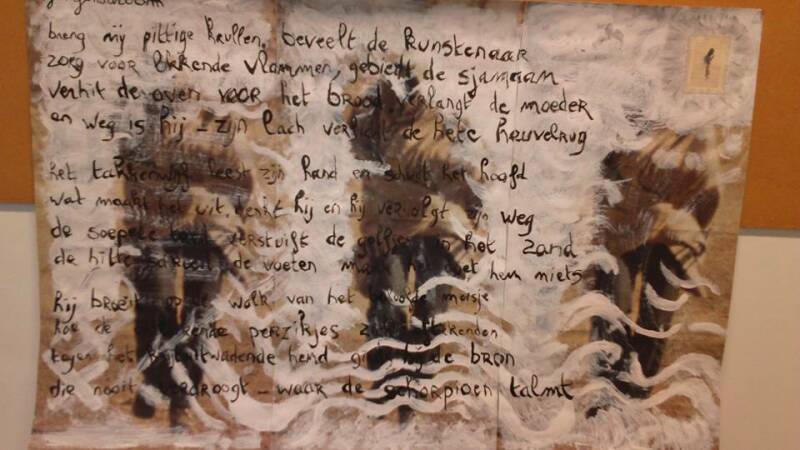 breng mij pittige krullen, beveelt de kunstenaar
zorg voor likkende vlammen, gebiedt de sjamaan
verhit de oven voor het brood verlangt de moeder
en weg is hij - zijn lach verjaagt de hete heuvelrug
het takkenwijf leest zijn hand en schudt het hoofd
wat maakt het uit, denkt hij en hij vervolgt zijn weg
de soepele verstuift de golfjes in het zand
de hitte de voeten maar het hem niets
hij broeit op de wolk van het meisje
hoe de perzikjes
tegen het hemd de bron
die nooit verdroogt - waar de schorpioen talmt